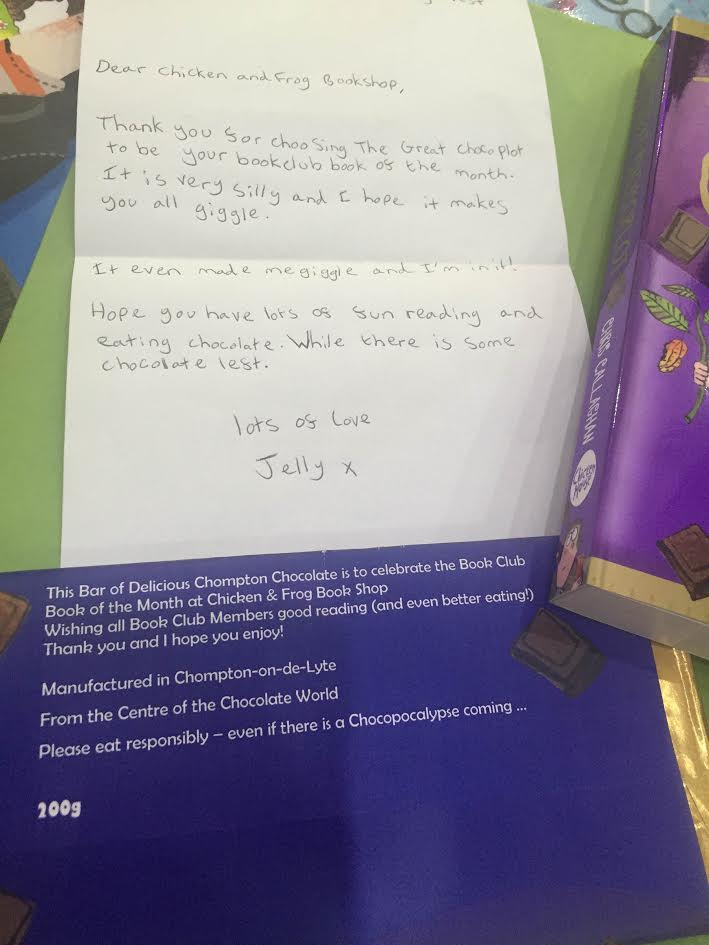 Dear Chicken and Frog Bookshop,
Thank you for choosing The Great Chocoplot
to be your bookclub book of the month.
It is very silly and I hope it makes
you all giggle.
It even made me giggle and I'm in it!
Hope you have lots of fun reading and
eating chocolate. While there is some
chocolate left.
lots of love
Jelly x
This Bar of Delicious Chompton Chocolate is to celebrate the Book Club
Book of the Month at Chicken & Frog Book Shop
Wishing all Book Club Members good reading (and even better eating!)
Thank you and I hope you enjoy!
Manufactured in Chompton-on-de-Lyte
From the Centre of the Chocolate World
Please eat responsibly – even if there is a Chocopocalypse coming ...
200g
CHRIS CALLAGHAN
Chicken House